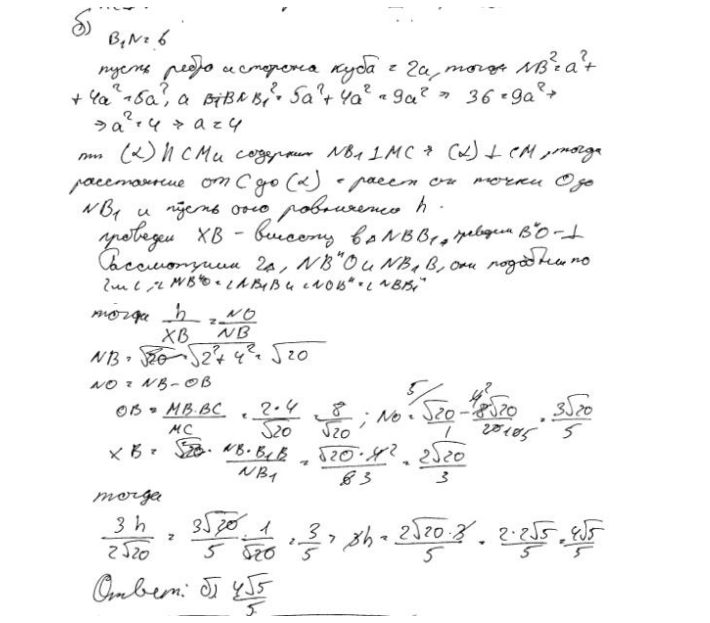 б)
B₁N = 6
пусть ребро и сторона куба = 2a, тогда NB² = a² +
+ 4a² = 5a², а NB₁² = 5a² + 4a² = 9a² ⇒ 36 = 9a² ⇒
⇒ a² = 4 ⇒ a = 4
тк (α) || CM и содержит NB₁ ⊥ MC ⇒ (α) ⊥ CM, тогда
расстояние от C до (α) = расст от точки O до
NB₁ и пусть оно равняется h.
проведем XB – высоту в △NBB₁, проведем B"O – ⊥
Рассмотрим 2△, NB"O и NB₁B, они подобны по
2м ∠, ∠NB"O = ∠NB₁B и ∠NOB" = ∠NBB₁"
тогда h/XB = NO/NB
NB = √(2² + 4²) = √20
NO = NB – OB
OB = MB·BC/MC = 2·4/√20 = 8/√20 ; NO = √20/1 – 8√20/20 = 3√20/5
XB = NB·B₁B/NB₁ = √20·4/6 = 2√20/3
тогда
3h/2√20 = 3√20/5 · 1/√20 = 3/5 ⇒ 3h = 2√20·3/5 = 2·2√5/5 = 4√5/5
Ответ: б) 4√5/5